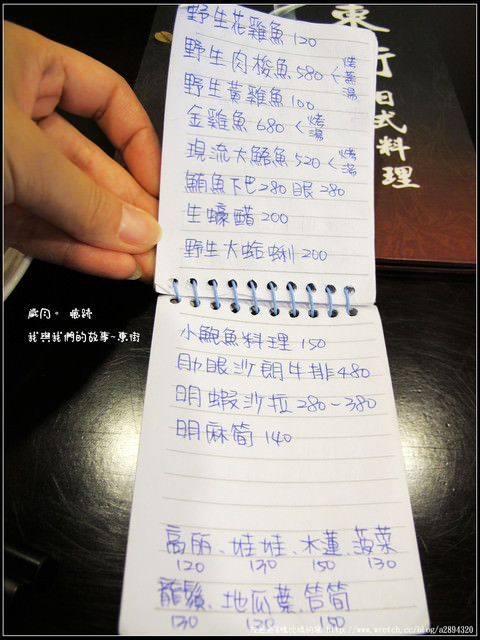 野生花雞魚 120
野生肉梭魚 580 < 烤 蒸 湯
野生黃雞魚 100
金雞魚 680 < 烤 湯
現流大鮥魚 520 < 烤 湯
鮪魚下巴 280 眼 280
生蠔醋 200
野生大蛤蜊 200
小鮑魚料理 150
肋眼沙朗牛排 480
明蝦沙拉 280~380
明麻筍 140
高丽、娃娃、水蓮、菠菜
120 130 150 130
龍鬚、地瓜葉、筊筍
130 120 150
東街日式料理
歲月。憶跡
我與我們的故事~東街
http://www.wretch.cc/blog/a2894320